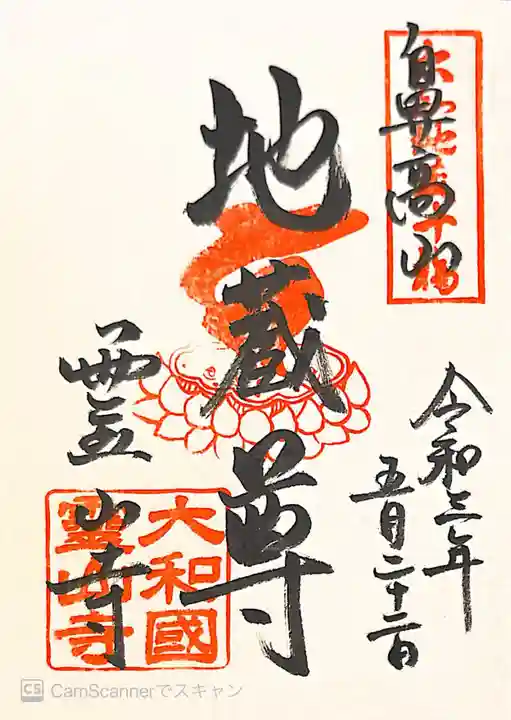 鼻高山
令和三年
五月二十二日
地蔵尊
霊山寺
大和國
霊山寺
CS CamScannerでスキャン